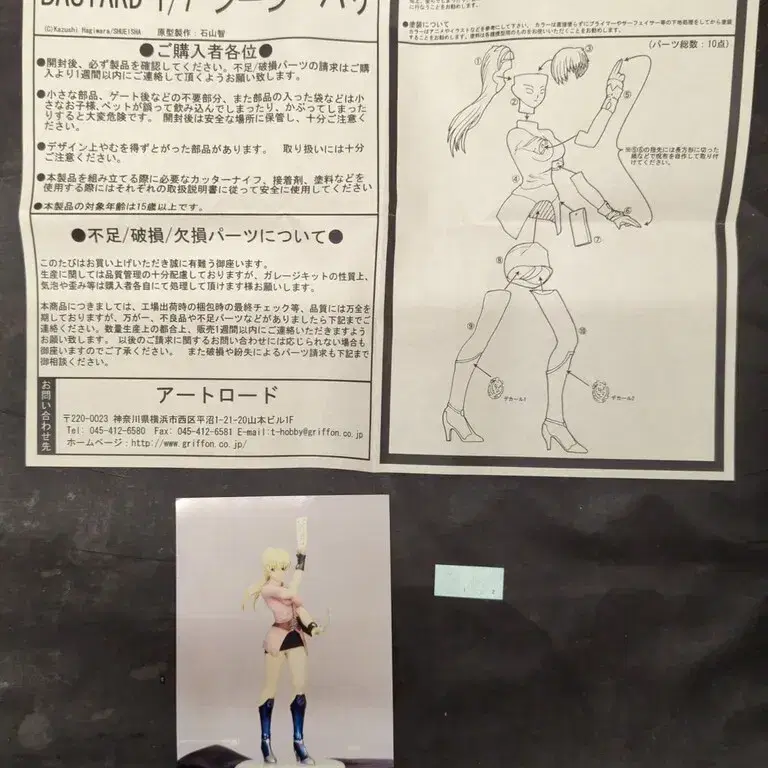 BASTARD 1/7 シーン・ハリ
(C)Kazushi Hagiwara/SHUEISHA 原型製作：石山智
●ご購入者各位●
●開封後、必ず製品を確認してください。不足/破損パーツの請求はご購
入より1週間以内にご連絡して頂くようお願い致します。
●小さな部品、ゲート後などの不要部分、また部品の入った袋などは小
さなお子様、ペットが誤って飲み込んでしまったり、かぶってしまった
りすると大変危険です。 開封後は安全な場所に保管し、十分ご注意く
ださい。
●デザイン上やむを得ずとがった部品があります。 取り扱いには十分
ご注意ください。
●本製品を組み立てる際に必要なカッターナイフ、接着剤、塗料などを
使用する際にはそれぞれの取扱説明書に従って安全に使用してください
●本製品の対象年齢は15歳以上です。
●不足/破損/欠損パーツについて●
このたびはお買い上げいただき誠に有難う御座います。
生産に関しては品質管理の十分配慮しておりますが、ガレージキットの性質上、
気泡や歪み等は購入者各自にて処理して頂けます様お願いします。
本商品につきましては、工場出荷時の梱包時の最終チェック等、品質には万全を
期しておりますが、万が一、不良品や不足パーツなどがありましたら下記までご
連絡ください。数量生産上の都合上、販売1週間以内にご連絡いただきますよう
お願い致します。 以後のご請求に関するお問い合わせには応じられない場合も
御座いますのでご了承ください。 また破損や紛失によるパーツ請求も下記まで
御相談ください。
お問い合わせ先
アートロード
〒220-0023 神奈川県横浜市西区平沼1-21-20山本ビル1F
Tel: 045-412-6580 Fax: 045-412-6581 E-mail:t-hobby@griffon.co.jp
ホームページ：http://www.griffon.co.jp/
に行なうことをお勧めします。
●塗装について
カラーはアニメやイラストなどを参考にして下さい。 カラーは直接塗らずにプライマーやサーフェイサー等の下地処理をしてから塗装
することをお勧めします。塗料は各種模型用のものをお使いいただくことをお勧めします。
(パーツ総数：10点)
①
②
③
④
⑤
※⑤⑥の指先には長方形に切った
紙などで呪符を自作して取り付
けてください。
⑥
⑦
⑧
⑨
⑩
デカール1
デカール2
1 2